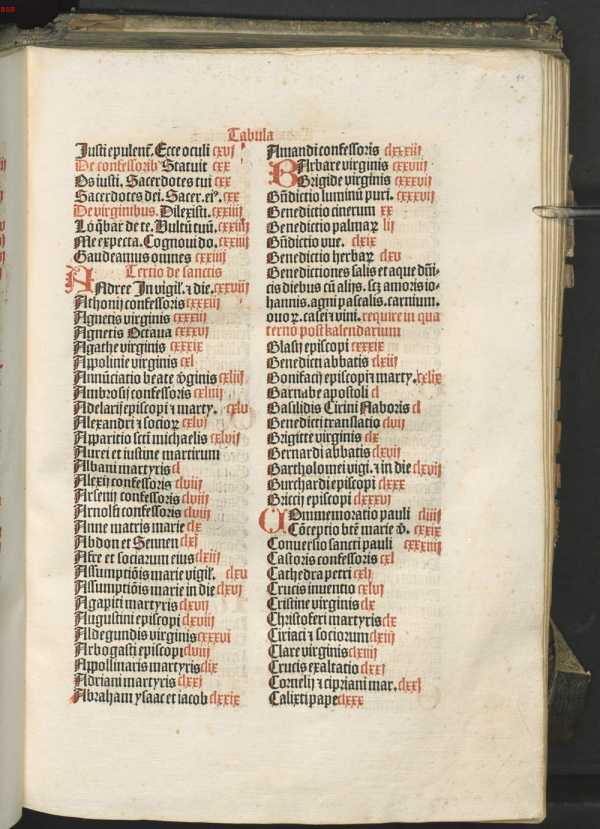 Tabula
Justi epulent᷒. Ecce oculi cxvj
De confessorib᷒ Statuit cxx
Os iusti. Sacerdotes tui cxx
Sacerdotes dei. Sacer. ei᷒. cxx
De virginibus. Dilexisti. cxxiiij
Loq̄bar de te. Vultū tuū. cxxiiij
Me expecta. Cognoui do. cxxiiij
Gaudeamus omnes cxxiiij
Tertio de sanctis
ANdree In vigil'. ⁊ die. cxxviij
Athonij confessoris cxxxiij
Agnetis virginis cxxxiij
Agnetis Octaua cxxxvj
Agathe virginis cxxxix
Appolinie virginis cxl
Annūciatio beate v̄ginis cxliij
Ambrosij confessoris cxliiij
Adelarij episcopi ⁊ marty. cxlv
Alexandri ⁊ socioꝝ cxlvj
Apparitio sctī michaelis cxlvij
Aurei et iustine martirum
Albani martyris cl
Alexij confessoris clviij
Arsenij confessoris clviij
Arnolfi confessoris clviij
Anne matris marie clx
Abdon et Sennen clxj
Afre et sociarum eius clxiij
Assumptiōis marie vigil'. clxv
Assumptiōis marie in die clxvj
Agapiti martyris clxvij
Augustini episcopi clxviij
Aldegundis virginis cxxxvi
Arbogasti episcopi clviij
Appollinaris martyris clix
Adriani martyris clxxj
Abraham ysaac et iacob clxxix
Amandi confessoris clxxxiij
BArbare virginis cxxviij
Brigide virginis cxxxvij
Bn̄dictio luminū puri. cxxxvij
Benedictio cinerum xx
Benedictio palmaꝝ lij
Bn̄dictio vue. clxix
Benedictio herbaꝝ clxv
Benedictiones salis et aque dn̄i⸗
cis diebus cū alijs. scꝫ amoris io⸗
hannis. agni pascalis. carnium.
ouoꝝ. casei ⁊ vini. require in qua
terno post kalendarium
Blasij episcopi cxxxix
Benedicti abbatis clxiij
Bonifacij episcopi ⁊ marty. cxlix
Barnabe apostoli cl
Basilidis Cirini Naboris cl
Benedicti translatio clvij
Brigitte virginis clx
Bernardi abbatis clxvij
Bartholomei vigi. ⁊ in die clxvij
Burchardi episcopi clxxx
Briccij episcopi clxxxvj
COmmemoratio pauli cliiij
Cōceptio btē marie v̄. cxxix
Conuersio sancti pauli cxxxiiij
Castoris confessoris cxl
Cathedra petri cxlj
Crucis inuentio cxlvj
Cristine virginis clx
Christoferi martyris clx
Ciriaci ⁊ sociorum clxiij
Clare virginis clxiiij
Crucis exaltatio clxxj
Cornelij ⁊ cipriani mar. clxxj
Calixti pape clxxx